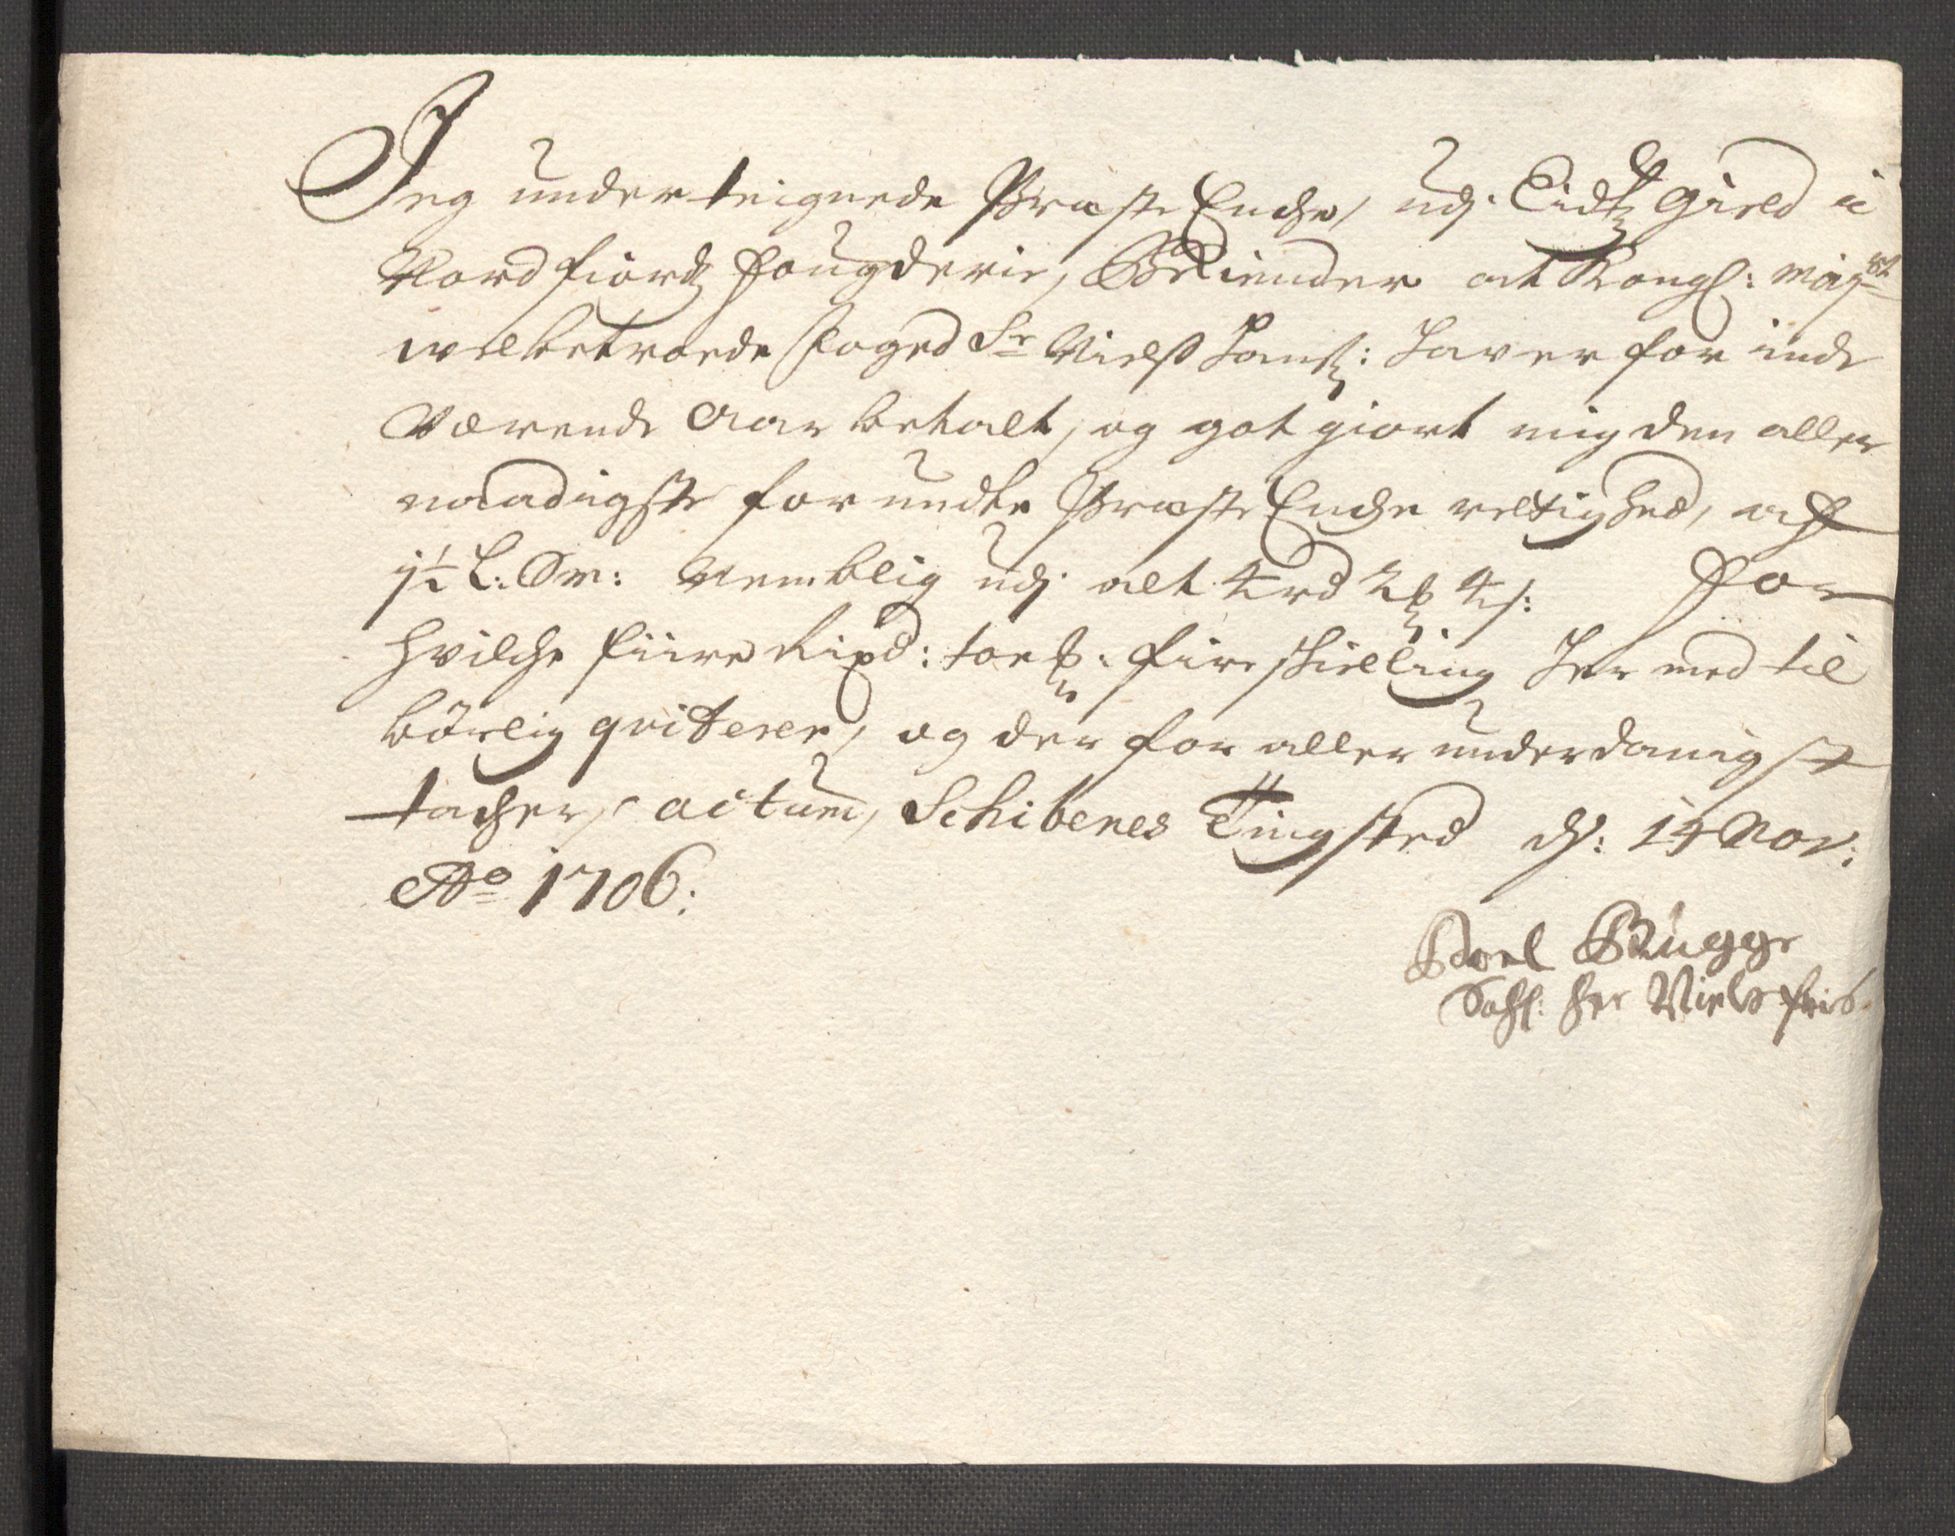 Jeg underteignede Præste Enche, udj Eidtz Gield i
Nordfiordz fougderie, Bekiender at Kongl: Mayst
welbetroede foged Sr Nielß Hanß: Laver for inde
Værende Aar betalt, og got giort mig den aller
naadigste forundte Præste Enche rettighed, aff
1½ L: Sm: Nemblig udj alt 4 rd 2 ß 4 s: for
hvilche fiire Rixd: toe ß: fire skielling her med til
børlig qviterer, og der for aller underdanigst
tacher, actum, Schibenes Tingsted d: 14 Nov:
Ao 1706:
Boel Bugge
Sahl: her Niels friis